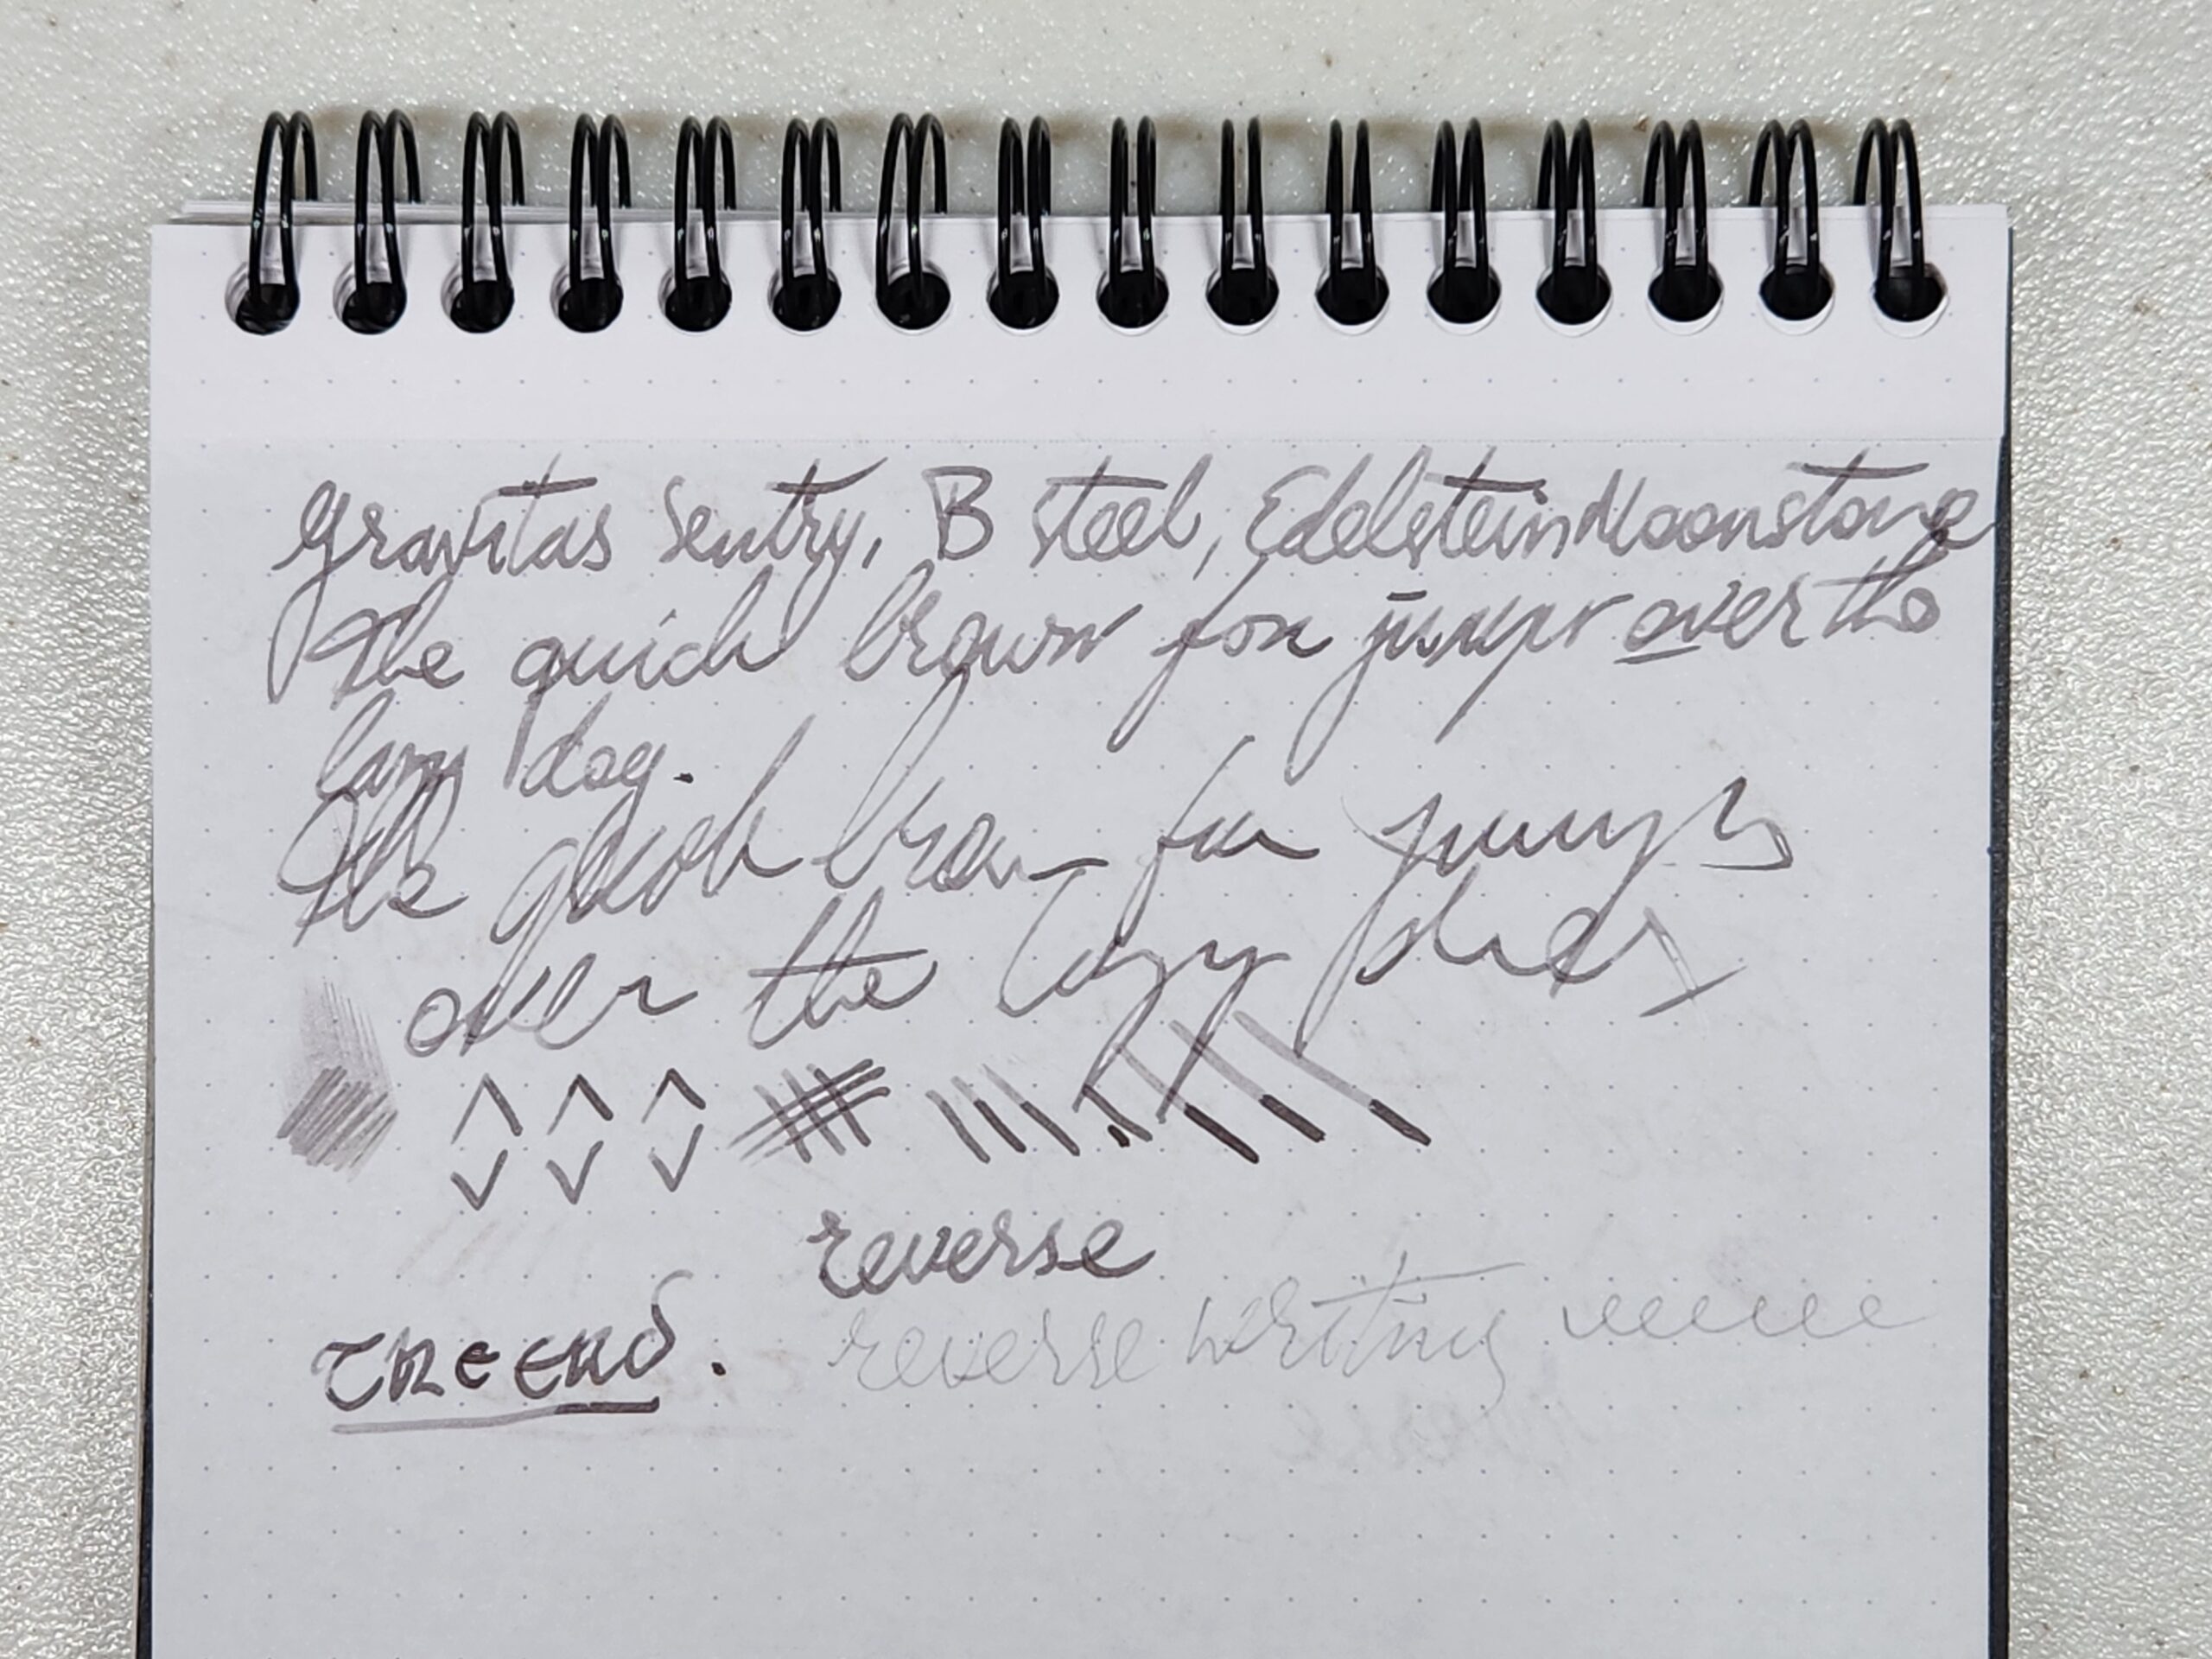 Gravitas Sentry, B steel, Edelstein Moonstone
The quick brown fox jumps over the
lazy dog.
The quick brown fox jumps
over the lazy dog
reverse
reverse writing eeeeee
THE END.